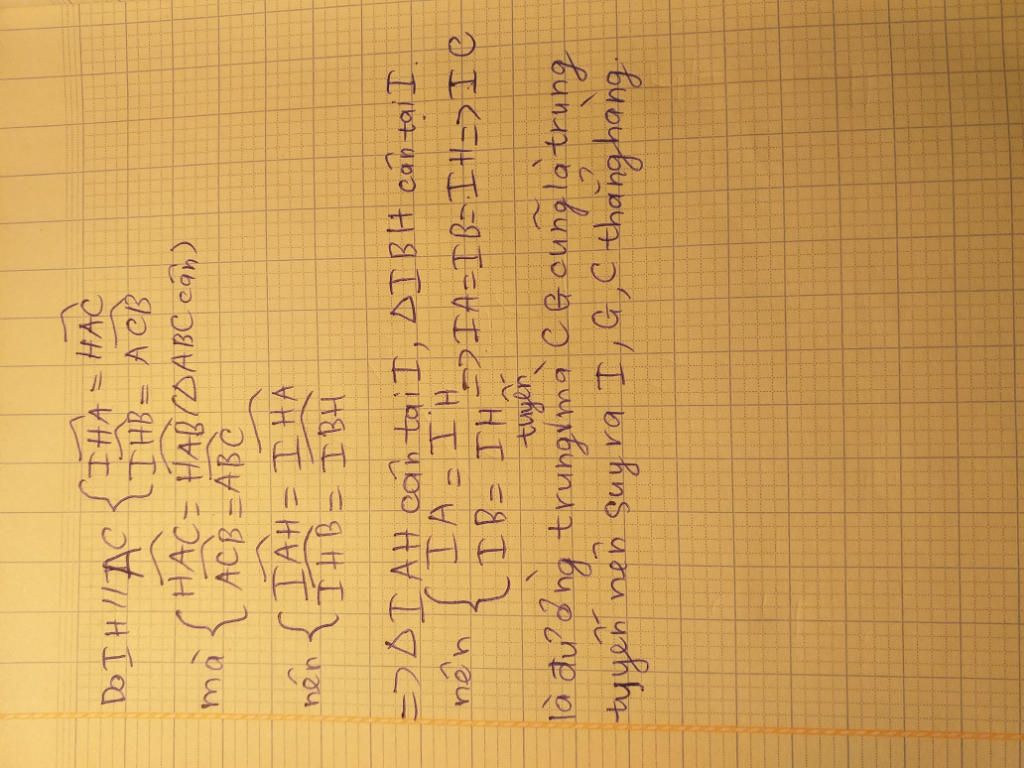 Do IH // AC { IHA = HAC
IHB = ACB
mà { HAC = HAB (ΔABC cân)
ACB = ABC
nên { IAH = IHA
IHB = IBH
=> ΔIAH cân tại I, ΔIBH cân tại I.
nên { IA = IH
IB = IH => IA = IB = IH => IC
là đường trung tuyến mà CG cũng là trung
tuyến nên suy ra I, G, C thẳng hàng.